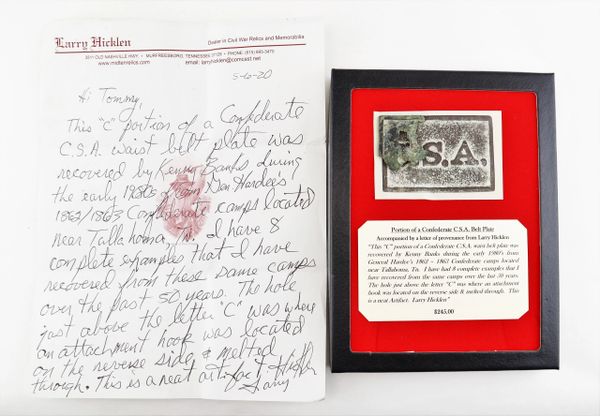 Larry Hicklen
Dealer in Civil War Relics and Memorabilia
3511 OLD NASHVILLE HWY. • MURFREESBORO, TENNESSEE 37129 • PHONE: (615)
www.midtenrelics.com email: larryhicklen@comcast.net
5-6-20
Hi Tommy,
This "C" portion of a Confederate
C.S.A. waist belt plate was
recovered by Kenny Banks during
the early 1980s from Gen Hardee's
1862/1863 Confederate camps located
near Tullahoma, Tn. I have 8
complete examples that I have
recovered from these same camps
over the past 50 years. The hole
just above the letter "C" was where
an attachment hook was located
on the reverse side & melted
through. This is a neat artifact.
Larry Hicklen
S.A.
Portion of a Confederate C.S.A. Belt Plate
Accompanied by a letter of provenance from Larry Hicklen
"This "C" portion of a Confederate C.S.A. waist belt plate was
recovered by Kenny Banks during the early 1980's from
General Hardee's 1862 – 1863 Confederate camps located
near Tullahoma, Tn. I have had 8 complete examples that I
have recovered from the same camps over the last 50 years.
The hole just above the letter "C" was where an attachment
hook was located on the reverse side & melted through. This
is a neat Artifact. Larry Hicklen"
$245.00